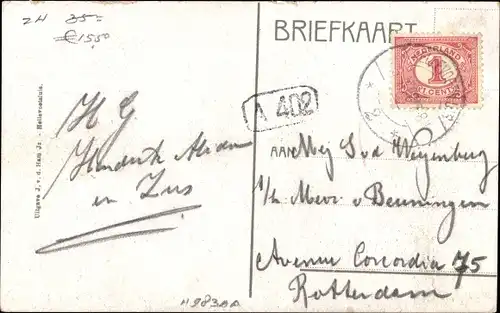 ZH 35=
€15,50
BRIEFKAART
NEDERLAND
1
CENT
A 402
H G
Hendrik
en Zus
AAN Mej S v d Weijenburg
p/a Mevr. v Beuningen
Avenue Concordia 75
Rotterdam
Uitgave J. v. d. Ham Jz. - Hellevoetsluis.